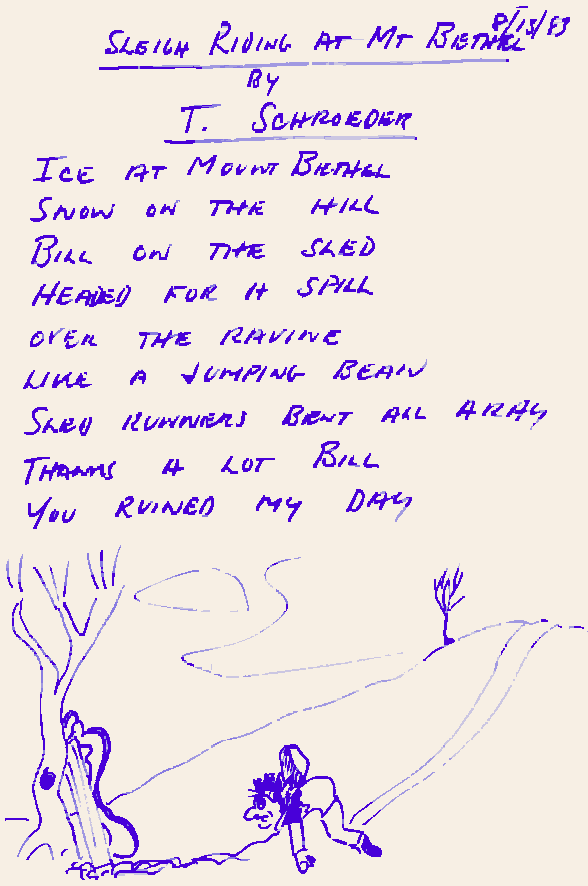 8/15/83
SLEIGH RIDING AT MT BETHEL
BY
T. SCHROEDER
ICE AT MOUNT BETHEL
SNOW ON THE HILL
BILL ON THE SLED
HEADED FOR A SPILL
OVER THE RAVINE
LIKE A JUMPING BEAN
SLED RUNNERS BENT ALL ARAY
THANKS A LOT BILL
YOU RUINED MY DAY